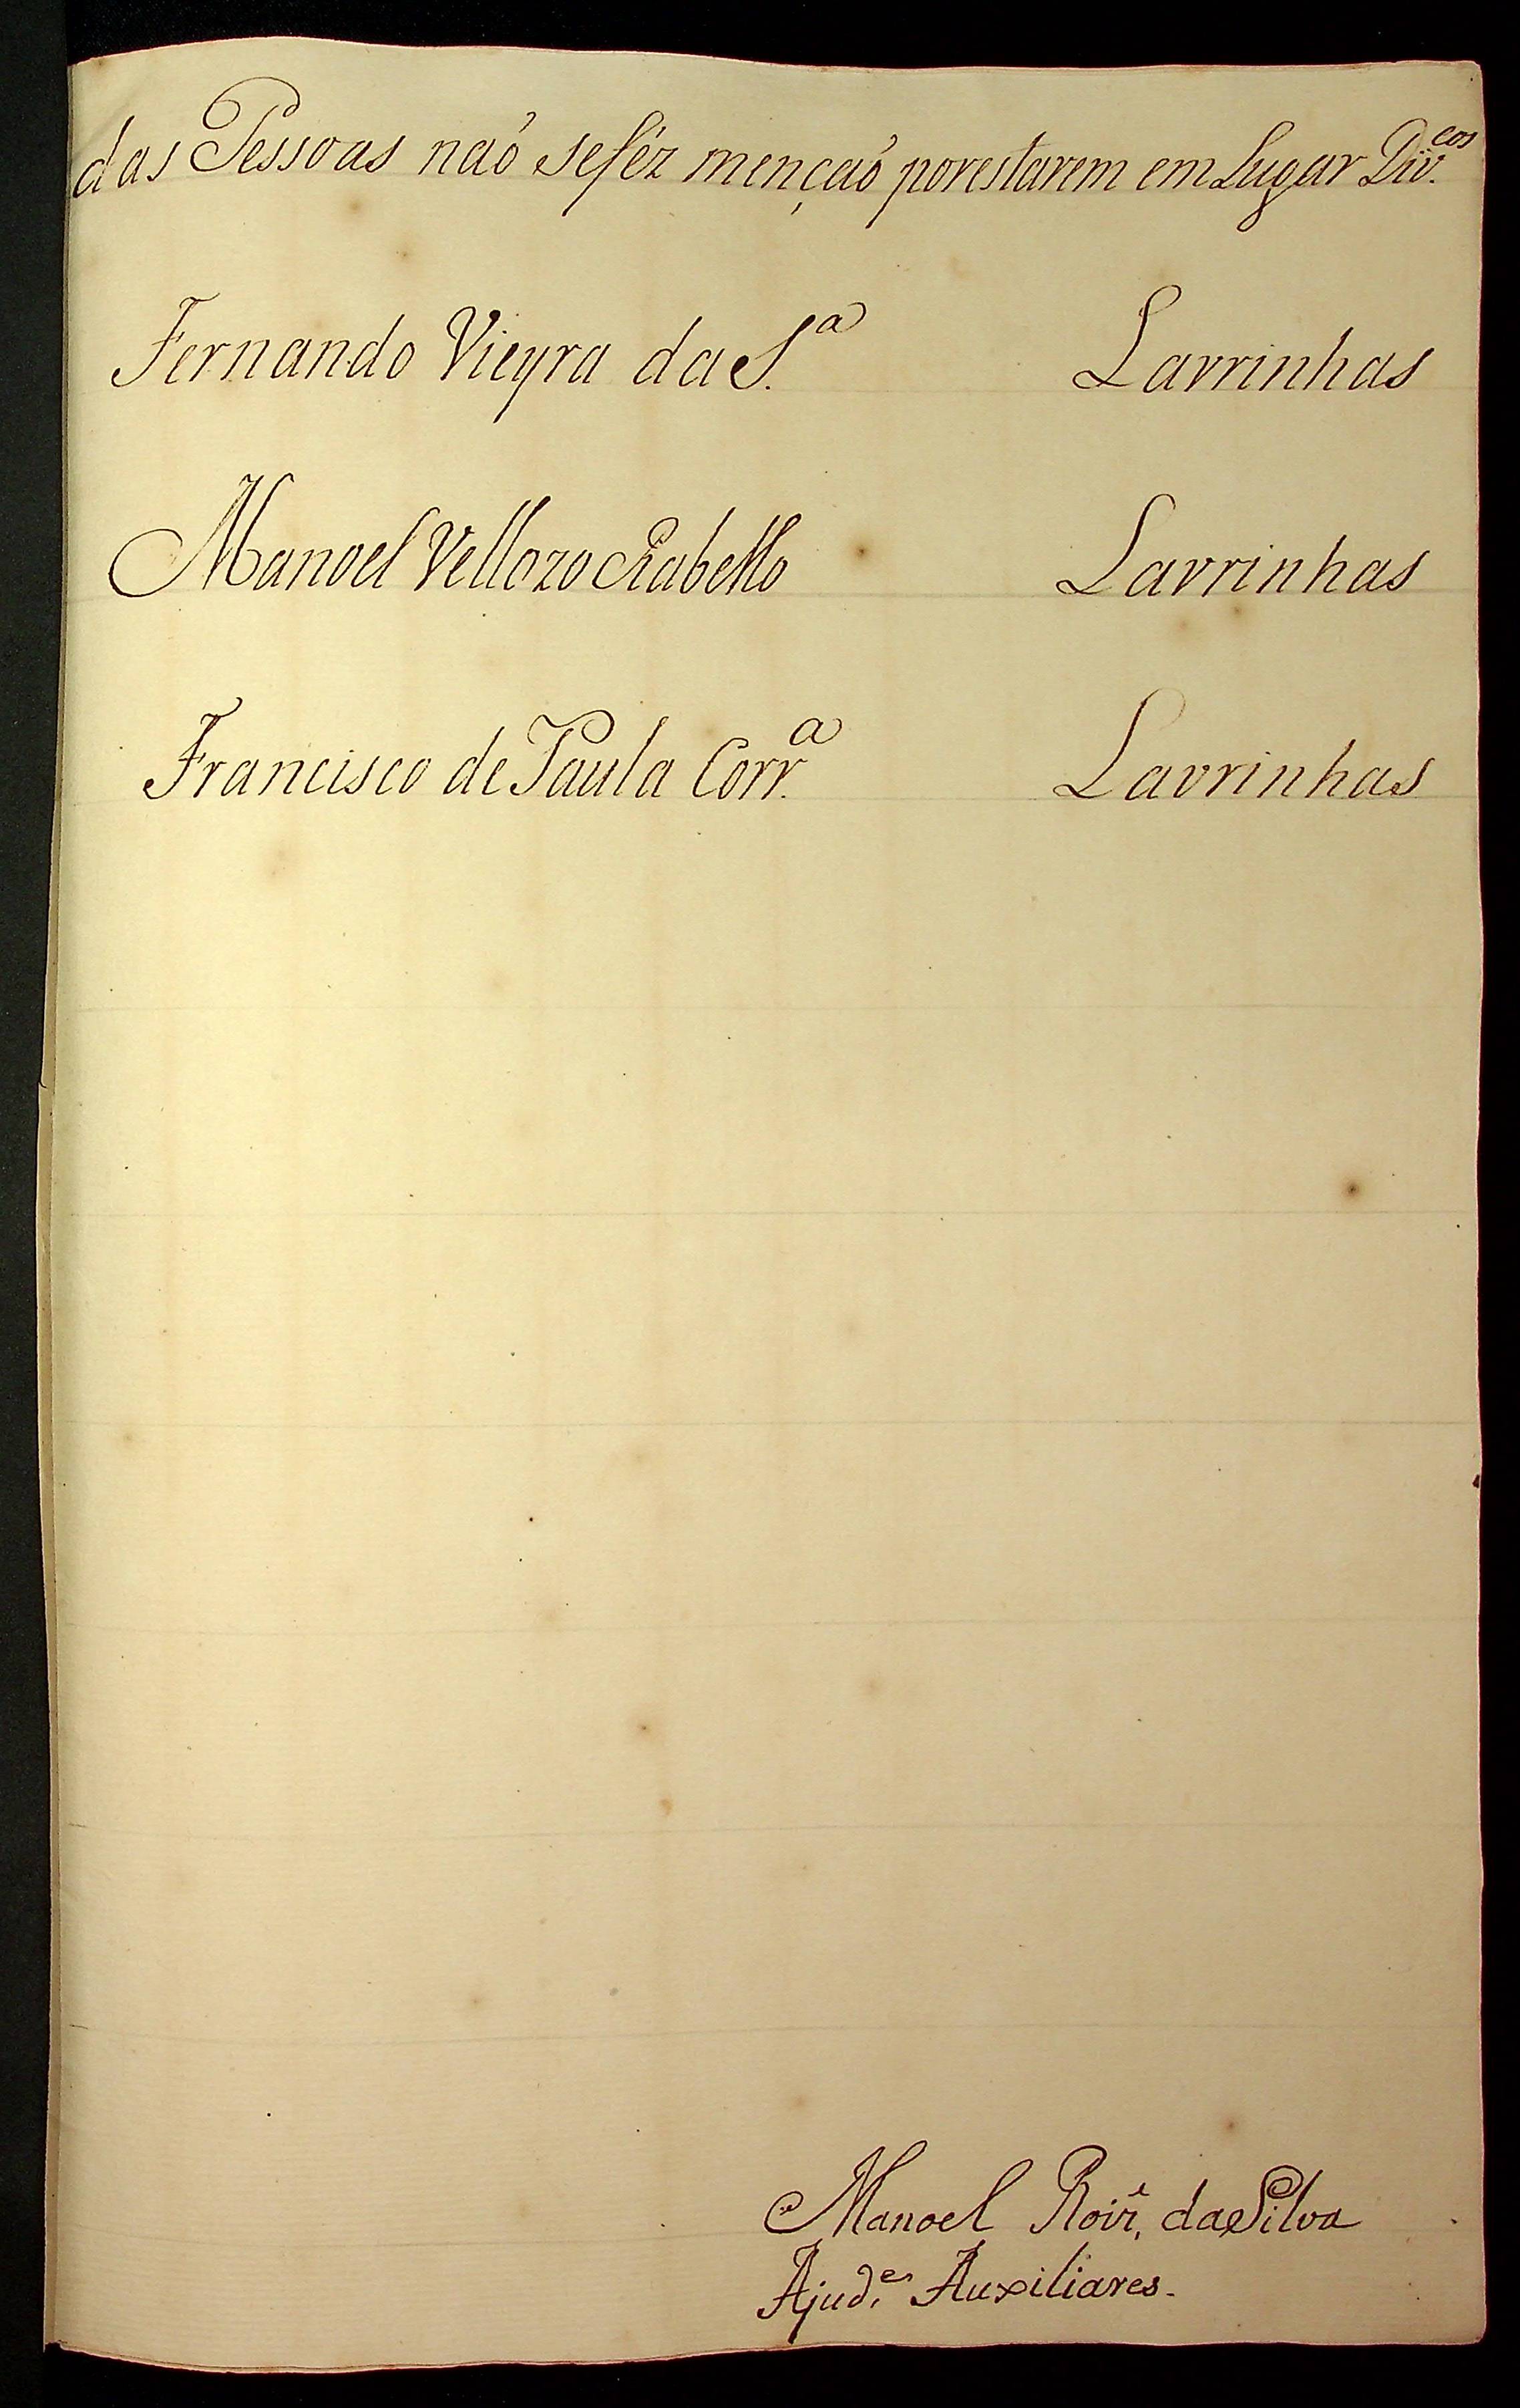 das Pessoas naõ sefêz mençaõ porestarem em Lugar Div.cos
Fernando Vieyra da S.a Lavrinhas
Manoel Vellozo Rabello Lavrinhas
Francisco de Paula Corr.a Lavrinhas
Manoel Roiz, da Silva
Ajud.e Auxiliares.